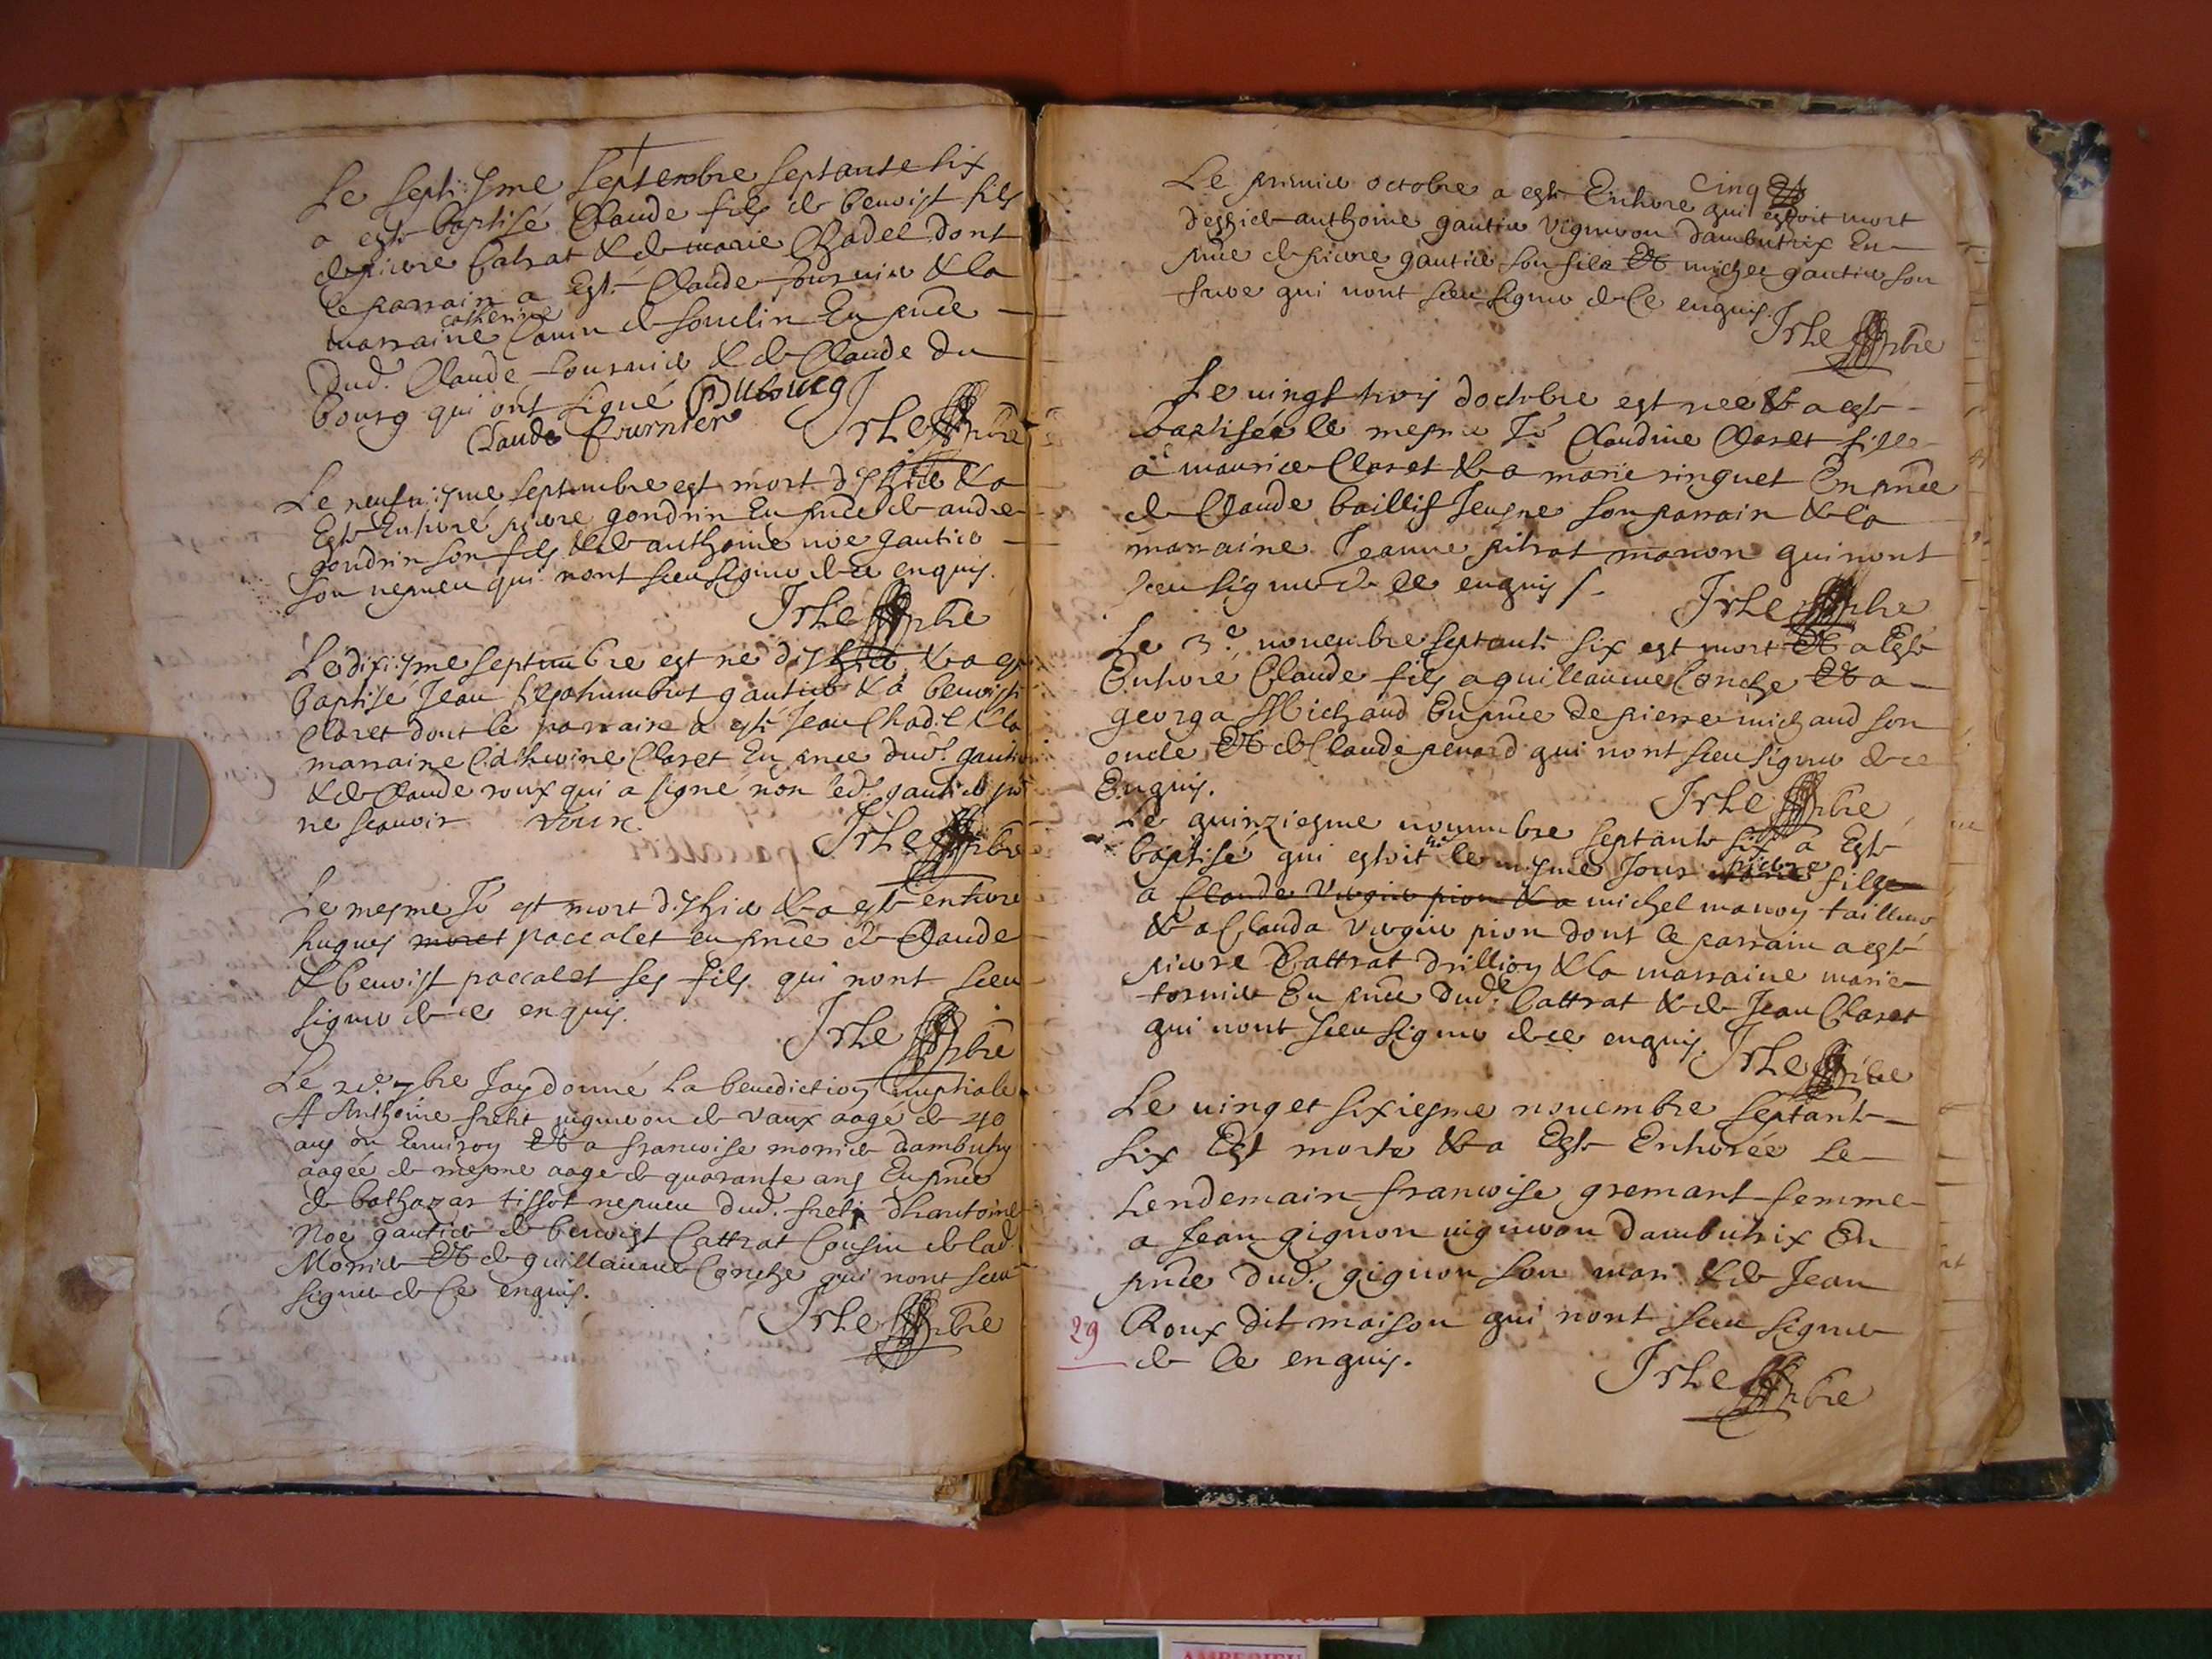 Le septiesme septembre septante six
a esté baptisé Claude fils de benoist fils
de pierre Catrat & de marie Chadel dont
le parrain a Esté Claude fournier & la
catherine
marraine Cantin de souclin En pnce
Dud. Claude fournier & de Claude du
bourg qui ont signé Dubourg
Claude fournier Irle pbre
Le neufuiesme septembre est mort & a
Esté Enterré pierre gondrin En pnce de andre
gondrin son fils & de anthoine noe gautier
son nepueu qui nont sceu signer de ce enquis.
Irle pbre
Le dixiesme septembre est né & a esté
baptisé Jean fils a humbert gautier & a benoiste
Claret dont le parrain a esté Jean Chadel & la
marraine Catherine Claret En pnce dud. gautier
& de Claude roux qui a signé non led. gautier pr
ne scauoir roux.
Irle pbre
Le mesme Jr est mort & a esté enterre
hugues moret paccalet en pnce de Claude
& benoist paccalet ses fils qui nont sceu
signer de ce enquis.
Irle pbre
Le 7bre Jay donné La benediction nuptiale
A Anthoine fretit vigneron de vaux aagé de 40
ans ou Enuiron Et a francoise monier dambutrix
aagée de mesme aage de quarante ans En pnce
de balthazar tissot nepueu dud. freti dhantoine
Noe gautier de benoist Cattrat Cousin de lad.
Monier Et de guillaume Conche qui nont sceu
signer de Ce enquis.
Irle pbre
Le premier octobre a esté Enterre cinq
qui estoit mort
anthoine gautier vigneron dambutrix En
pnce de pierre gautier son fils Et michel gautier son
frere qui nont sceu signer de Ce enquis.
Irle pbre
Le vingt trois doctobre est née & a esté
baptisée le mesme Jr Claudine Claret fille
a maurice Claret & a marie ringuet En pnce
de Claude baillif Jeusne son parrain & la
marraine Jeanne pitrat manon qui nont
sceu signer de ce enquis.
Irle pbre
Le 3e nouembre septante six est mort Et a Esté
Enterré Claude fils a guillaume Conche Et a
georga Michaud En pnce de pierre michaud son
oncle Et de Claude penard qui nont sceu signer de ce
Enquis.
Irle pbre
Le quinziesme nouembre septante six a Esté
baptisé qui estoit né le mesme Jour pierre fils
a Claude vergier pion & a michel manoy tailleur
& a Clauda vergier pion dont le parrain a esté
pierre Cattrat drillion & la marraine marie
tornier En pnce dud. Cattrat & de Jean Claret
qui nont sceu signer de ce enquis. Irle pbre
Le vinget sixiesme nouembre septante
six Est morte & a Esté Enterée Le
Lendemain francoise gremant femme
a Jean gignon vigneron dambutrix En
pnce dud. gignon son mari & de Jean
29 Roux dit maison qui nont sceu signer
de Ce enquis.
Irle pbre
AMBERIEU